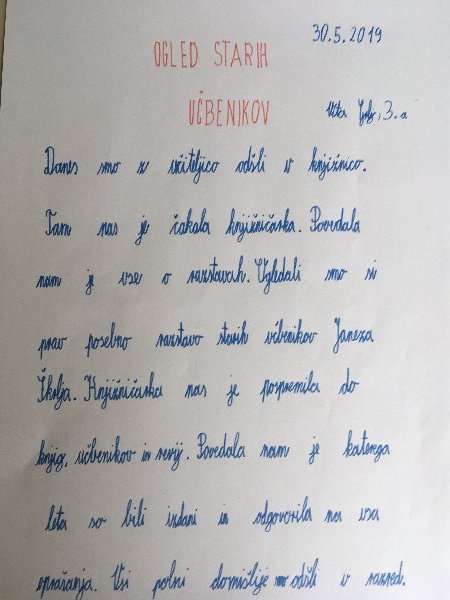 30.5.2019
OGLED STARIH
UČBENIKOV
Vita 3.a
Danes smo z učiteljico odšli v knjižnico.
Tam nas je čakala knjižničarka. Povedala
nam je vse o razstavah. Ogledali smo si
prav posebno razstavo starih učbenikov Janeza
Školja. Knjižničarka nas je pospremila do
knjig, učbenikov in revij. Povedala nam je katerega
leta so bili izdani in odgovorila na vsa
vprašanja. Vsi polni domišlije smo odšli v razred.